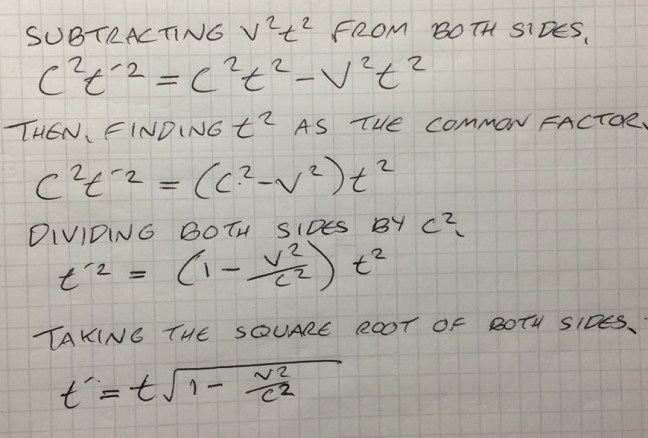 SUBTRACTING V²t² FROM BOTH SIDES,
C²t´² = C²t² - V²t²
THEN, FINDING t² AS THE COMMON FACTOR,
C²t´² = (C² - V²)t²
DIVIDING BOTH SIDES BY C²,
t´² = (1 - V²/C²) t²
TAKING THE SQUARE ROOT OF BOTH SIDES,
t´ = t√(1 - V²/C²)